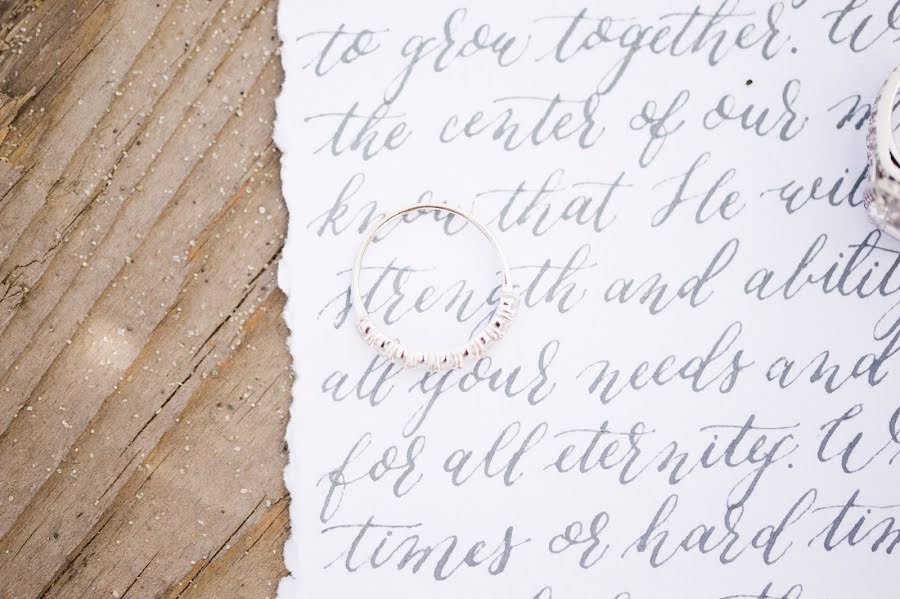 to grow together.
the center of our
know that He will
strength and ability
all your needs and
for all eternity.
times or hard